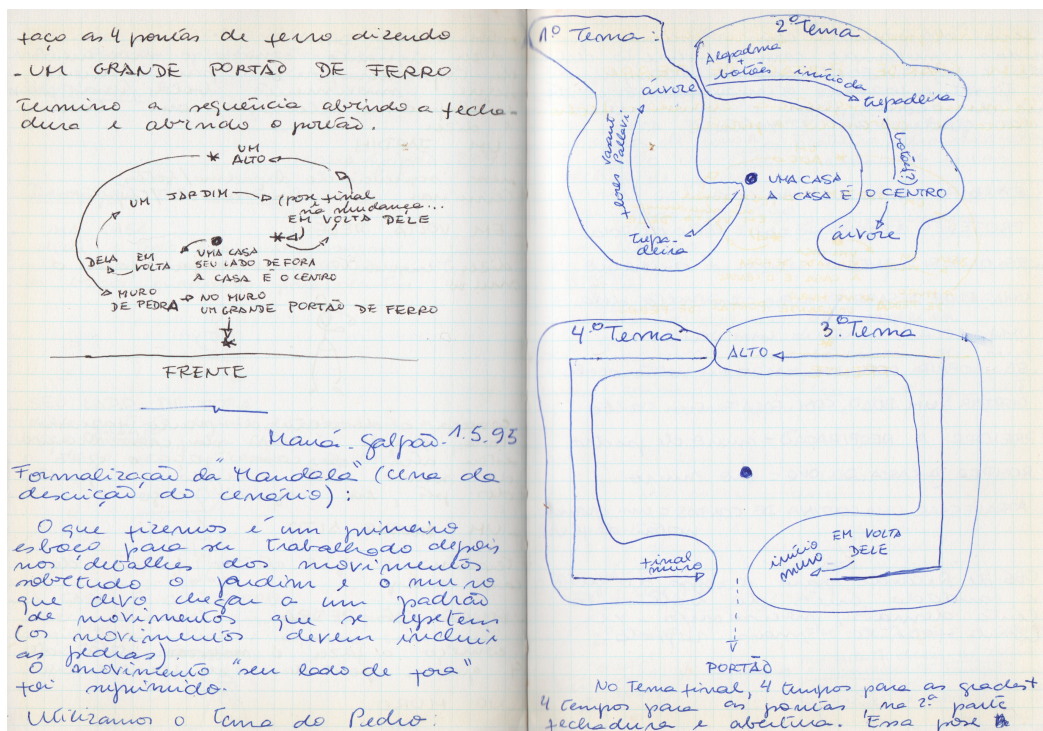 faço as 4 pontas de ferro dizendo
- UM GRANDE PORTÃO DE FERRO
Termino a sequência abrindo a fecha-
dura e abrindo o portão.
UM
ALTO
UM JARDIM
(pose final
na mudança...
EM VOLTA DELE
DELA EM
VOLTA
UMA CASA
SEU LADO DE FORA
A CASA É O CENTRO
MURO
DE PEDRA
NO MURO
UM GRANDE PORTÃO DE FERRO
FRENTE
Mauá - galpão - 1.5.93
Formalização da "Mandala" (cena da
descrição do cenário):
O que fizemos é um primeiro
esboço para ser trabalhado depois
nos detalhes dos movimentos
sobretudo o jardim e o muro
que devo chegar a um padrão
de movimentos que se repetem
(os movimentos devem incluir
as pedras)
O movimento "seu lado de fora"
foi suprimido.
Utilizamos o tema do Pedro:
1º Tema:
2º Tema
Alapadma
+
botões
início da
trepadeira
árvore
flores Vasant
Pallavi
botões(?)
UMA CASA
A CASA É O CENTRO
trepa-
deira
árvore
4.º Tema
3.º Tema
ALTO
final
muro
início
muro
EM VOLTA
DELE
PORTÃO
No Tema final, 4 tempos para as grades +
4 tempos para as pontas, na 2ª parte
fechadura e abertura. Essa pose